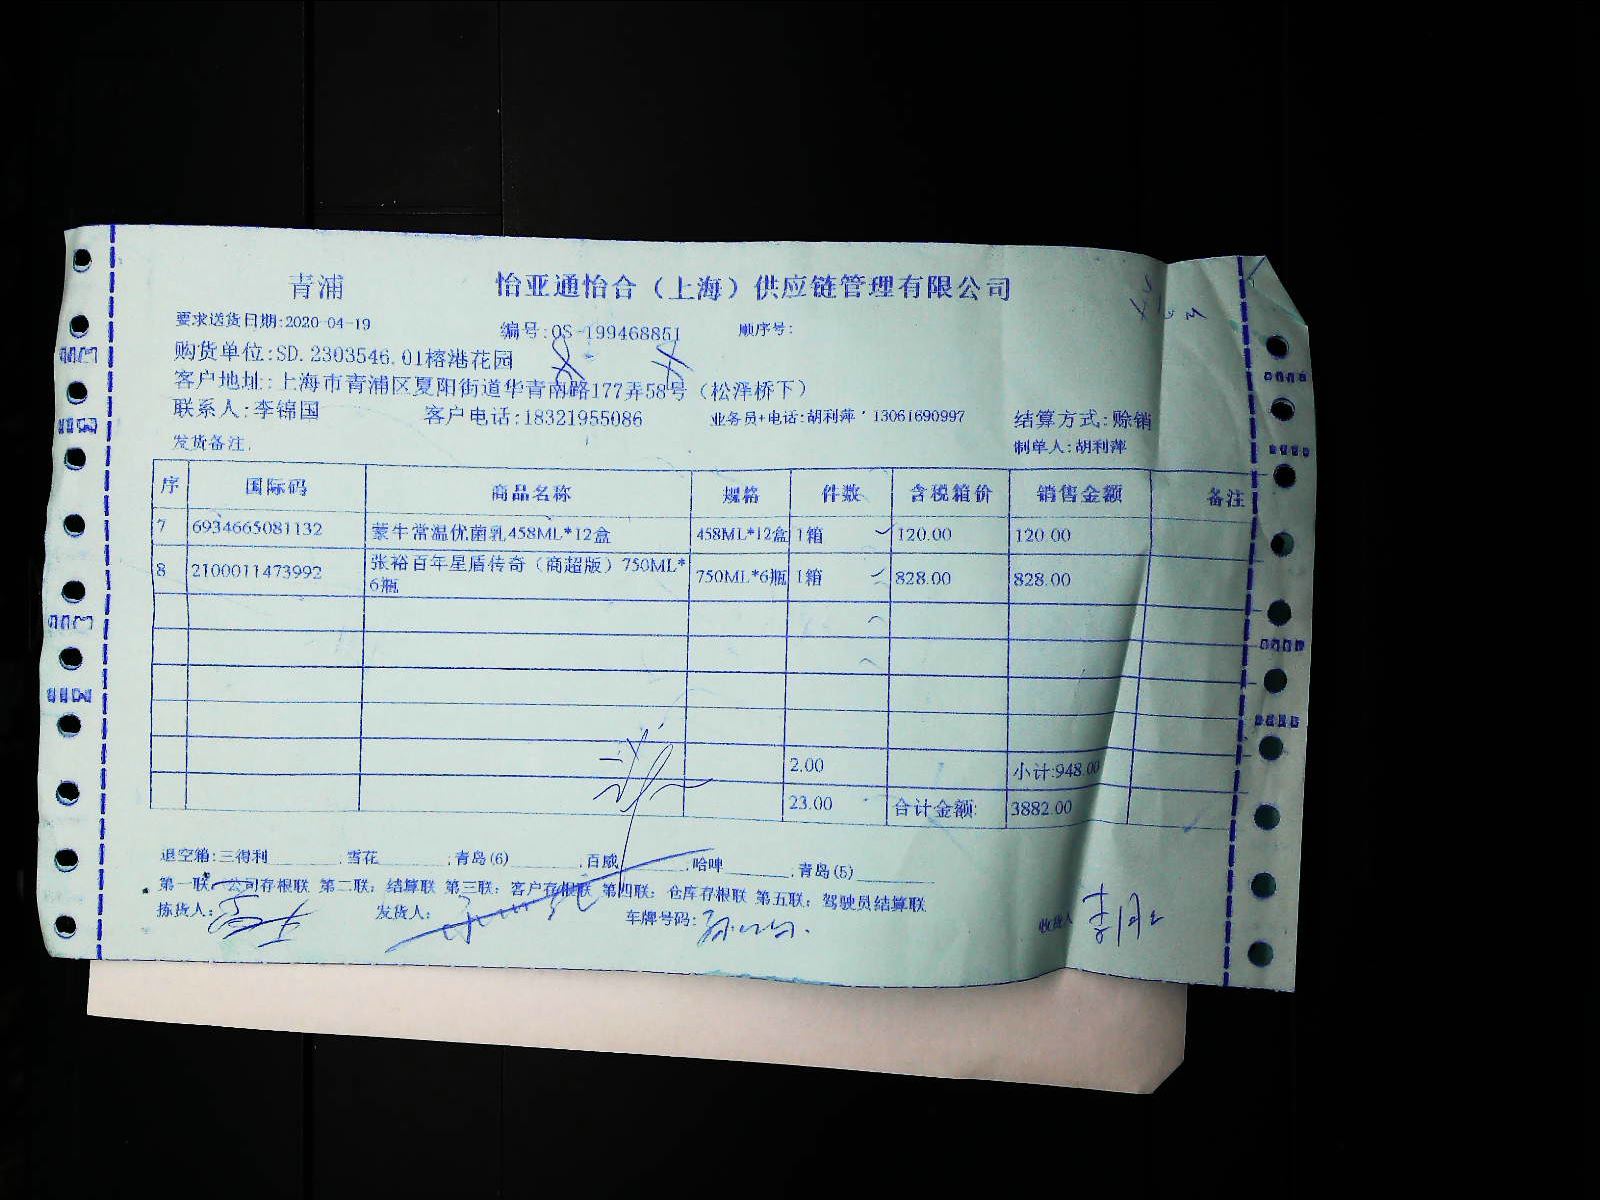 青浦 怡亚通怡合（上海）供应链管理有限公司
要求送货日期:2020-04-19 编号:OS-199468851 顺序号:
购货单位:SD.2303546.01榕港花园
客户地址::上海市青浦区夏阳街道华青南路177弄58号（松泽桥下）
联系人:李锦国 客户电话:18321955086 业务员+电话:胡利萍 13061690997 结算方式:赊销
发货备注: 制单人:胡利萍
序 国际码 商品名称 规格 件数 含税箱价 销售金额 备注
7 6934665081132 蒙牛常温优菌乳458ML*12盒 458ML*12盒 1箱 120.00 120.00
8 2100011473992 张裕百年星盾传奇（商超版）750ML*6瓶 750ML*6瓶 1箱 828.00 828.00
2.00 小计:948.00
23.00 合计金额: 3882.00
退空箱:三得利______,雪花______,青岛(6)______,百威______,哈啤______,青岛(5)______
第一联:公司存根联 第二联:结算联 第三联:客户存根联 第四联:仓库存根联 第五联:驾驶员结算联
拣货人: 发货人: 车牌号码: 收货人